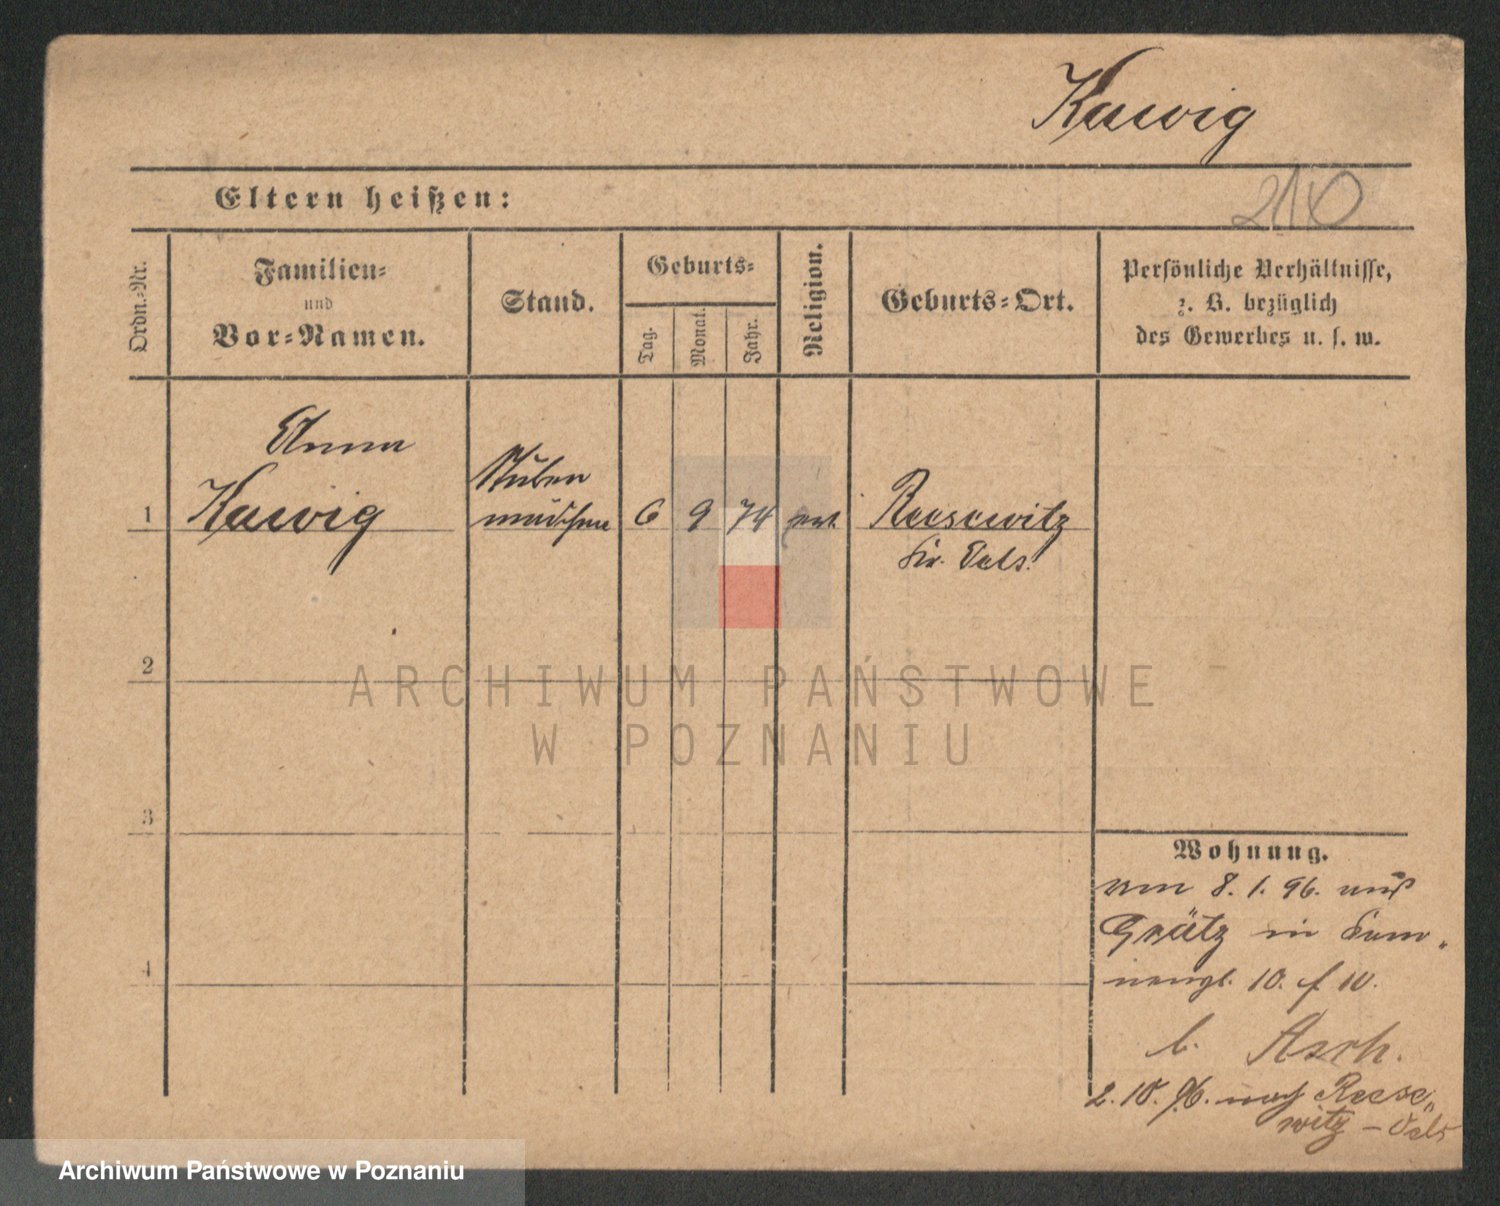 Kawig
210
Eltern heißen:
Ordn.=Nr.
Familien=
und
Vor=Namen.
Stand.
Geburts=
Tag.
Monat.
Jahr.
Religion.
Geburts=Ort.
Persönliche Verhältnisse,
z. B. bezüglich
des Gewerbes u. s. w.
1
Anna
Kawig
Stuben
mädchen
6
9
74
ev.
Reesewitz
Kr. Oels.
2
3
4
ARCHIWUM PAŃSTWOWE
W POZNANIU
Wohnung.
am 8.1.96. aus
Grätz in
10.
b. Asch.
2.10.96. nach Reese„
witz – Oels
Archiwum Państwowe w Poznaniu